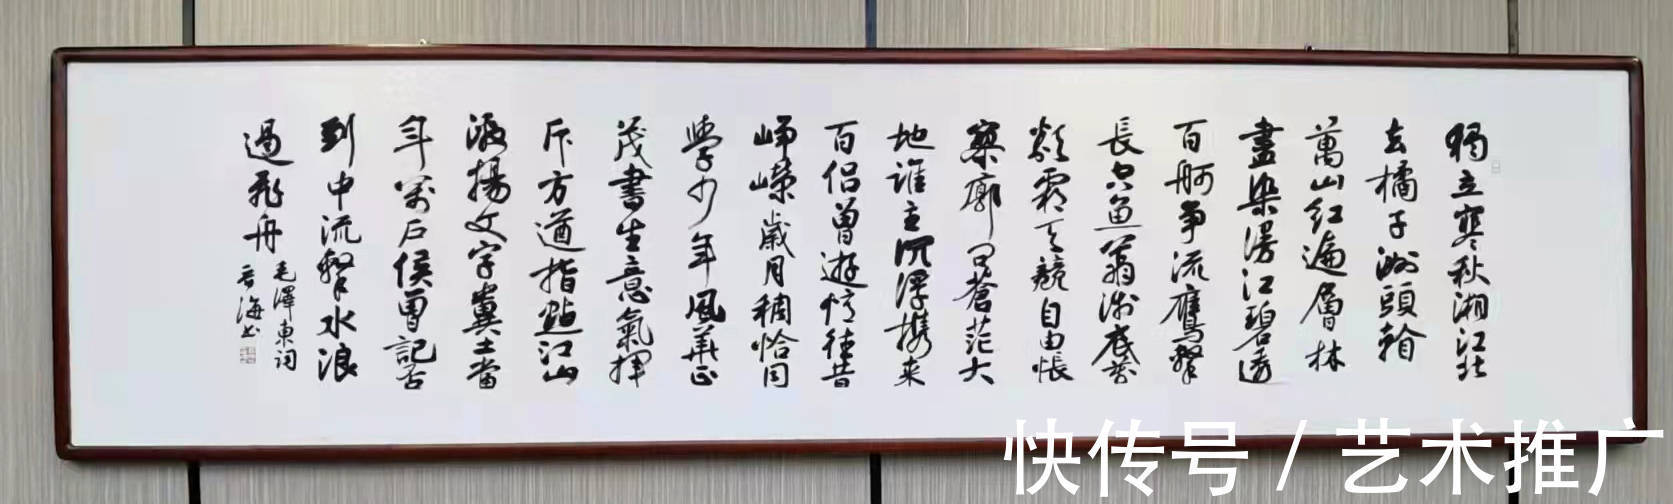 獨立寒秋湘江北
去橘子洲頭看
萬山紅遍層林
盡染漫江碧透
百舸爭流鷹擊
長空魚翔淺底萬
類霜天競自由悵
寥廓問蒼茫大
地誰主沉浮携来
百侣曾遊憶往昔
崢嶸歲月稠恰同
學少年風華正
茂書生意氣揮
斥方遒指點江山
激揚文字糞土當
年萬户侯曾記否
到中流擊水浪
遏飛舟
毛澤東詞
海书
快传号 / 艺术推广